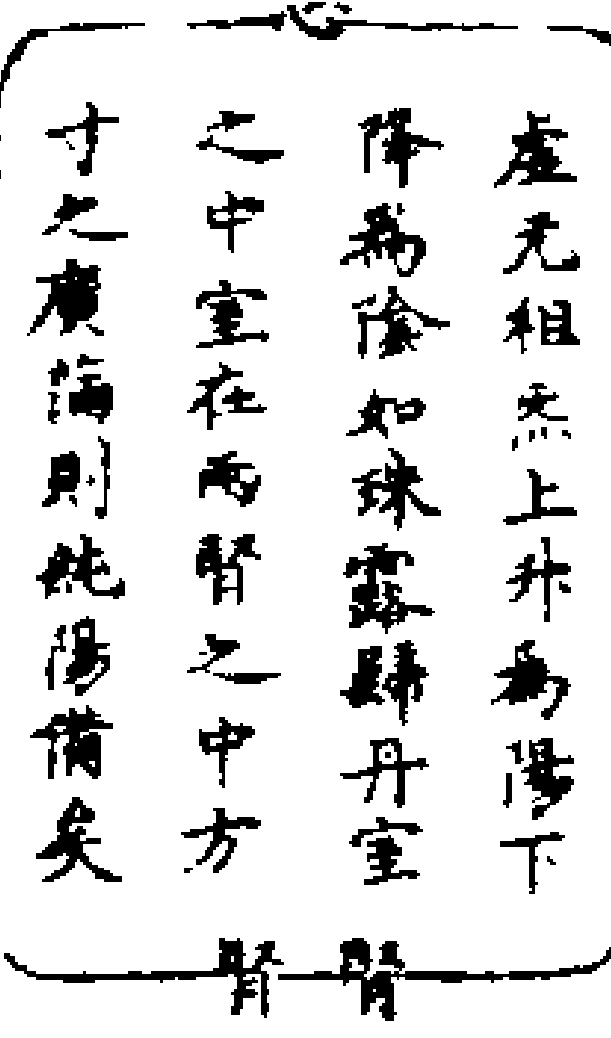 虛无祖炁上升為陽下
降為陰如珠露歸丹室
之中室在兩腎之中方
寸之廣滿則純陽備矣
腎 腎